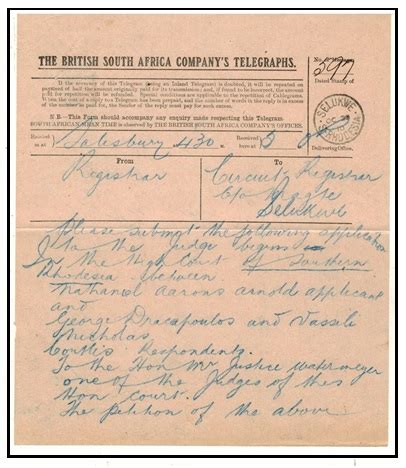 THE BRITISH SOUTH AFRICA COMPANY'S TELEGRAPHS.
397
Dated Stamp of
If the accuracy of this Telegram (being an Inland Telegram) is doubted, it will be repeated on
payment of half the amount originally paid for its transmission; and, if found to be incorrect, the amount
for repetition will be refunded. Special conditions are applicable to the repetition of Cablegrams.
If the cost of a reply to a Telegram has been prepaid, and the number of words in the reply is in excess
of the number paid for, the Sender of the reply must pay for such excess.
N.B.—This Form should accompany any enquiry made respecting this Telegram
SOUTH AFRICAN MEAN TIME is observed by THE BRITISH SOUTH AFRICA COMPANY'S OFFICES.
SELUKWE
RHODESIA
Delivering Office.
Received Salesbury 430 Received 5
From To
Registrar Circuit Registrar
c/o Magte
Selukwe
Please submit the following application
to the judge begins
In the High Court of Southern
Rhodesia between
Nathaniel Aarons Arnold applicant
and
George Dracapoulos and Vassili
Nicholas
Cortis Respondents.
To the Hon Mr Justice Watermeyer
one of the Judges of this
Hon Court.
The petition of the above